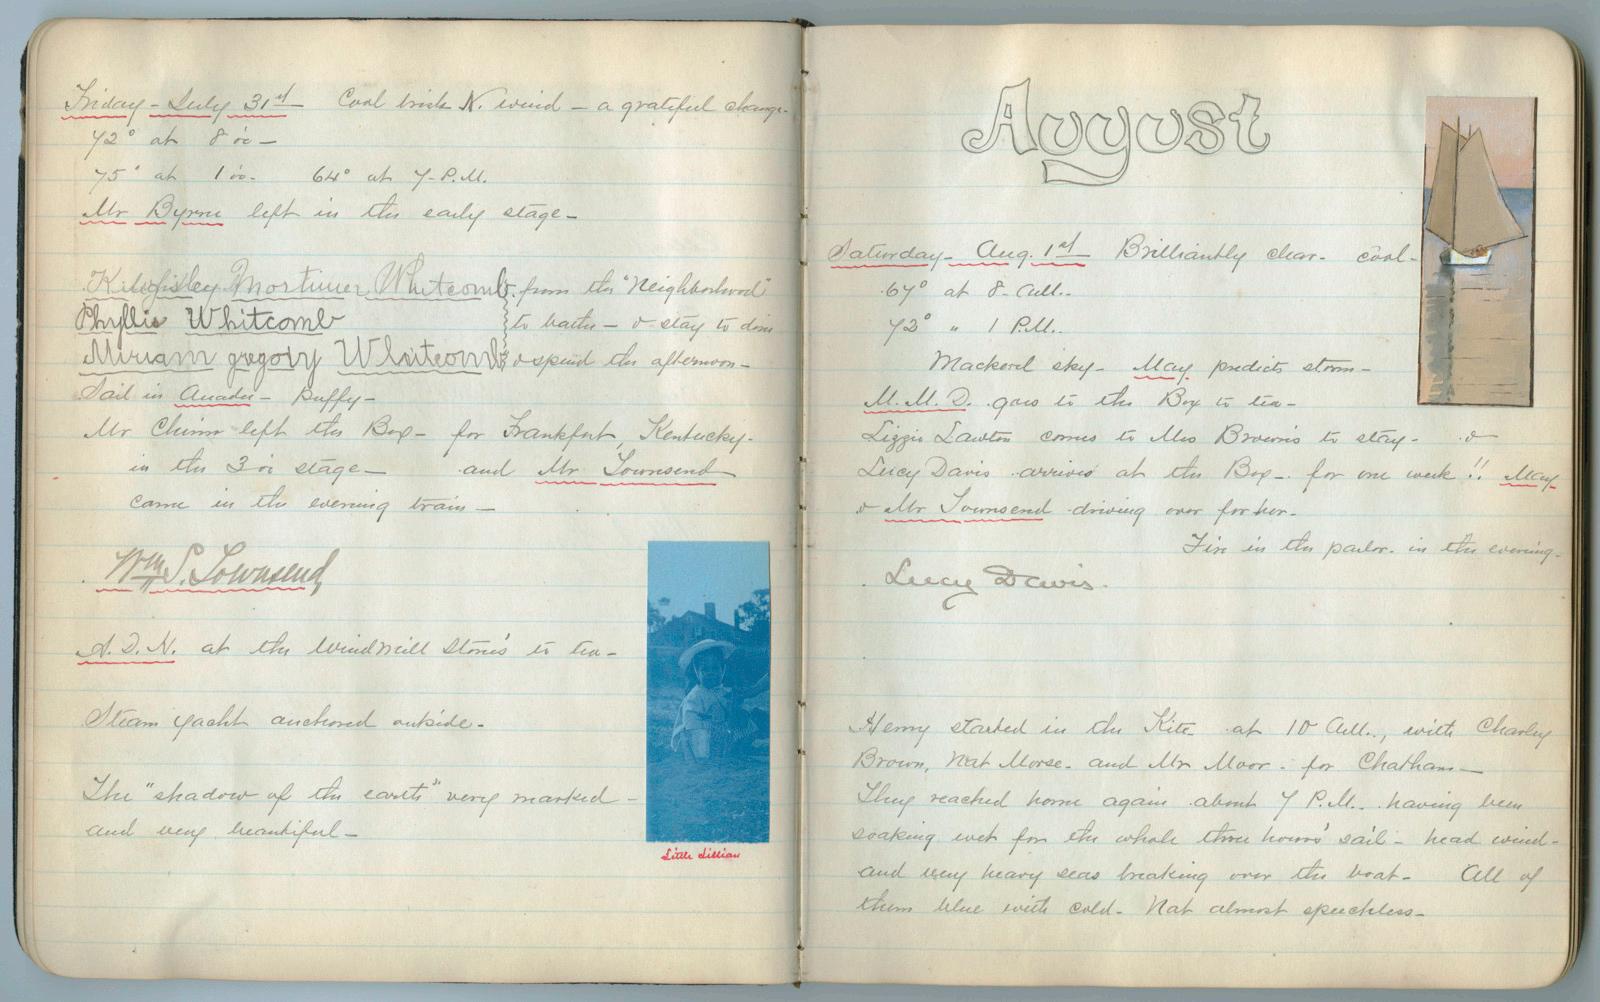 Friday - July 31st Cool brisk N. wind - a grateful change.
72° at 8 o'c -
75° at 1 o'c. 64° at 7 P.M.
Mr Byrne left in the early stage -
Kingsley Mortimer Whitcomb from the "Neighborhood"
Phyllis Whitcomb to bathe - & stay to dine
Miriam gregory Whitcomb & spend the afternoon -
Sail in - Puffy -
Mr left the Box - for Frankfort, Kentucky -
in the 3 o'c stage - and Mr Townsend
came in the evening train -
Wm S. Townsend
A. D. N. at the Windmill Stones to tea -
Steam yacht anchored outside -
The "shadow of the earth" very marked -
and very beautiful -
Little Lillian
August
Saturday - Aug. 1st Brilliantly clear - cool -
67° at 8 A.M.
72° " 1 P.M.
Mackerel sky - May predicts storm -
M. M. D. goes to the Box to tea -
Lizzie Lawton comes to Mrs Brown's to stay - &
Lucy Davis arrives at the Box - for one week!! May
& Mr Townsend driving over for her -
Fire in the parlor in the evening -
Lucy Davis.
Henry started in the Kite at 10 A.M., with Charley
Brown, Nat Morse - and Mr Moor - for Chatham -
They reached home again about 7 P.M. having been
soaking wet for the whole three hours' sail - head wind -
and very heavy seas breaking over the boat - All of
them blue with cold - Nat almost speechless -